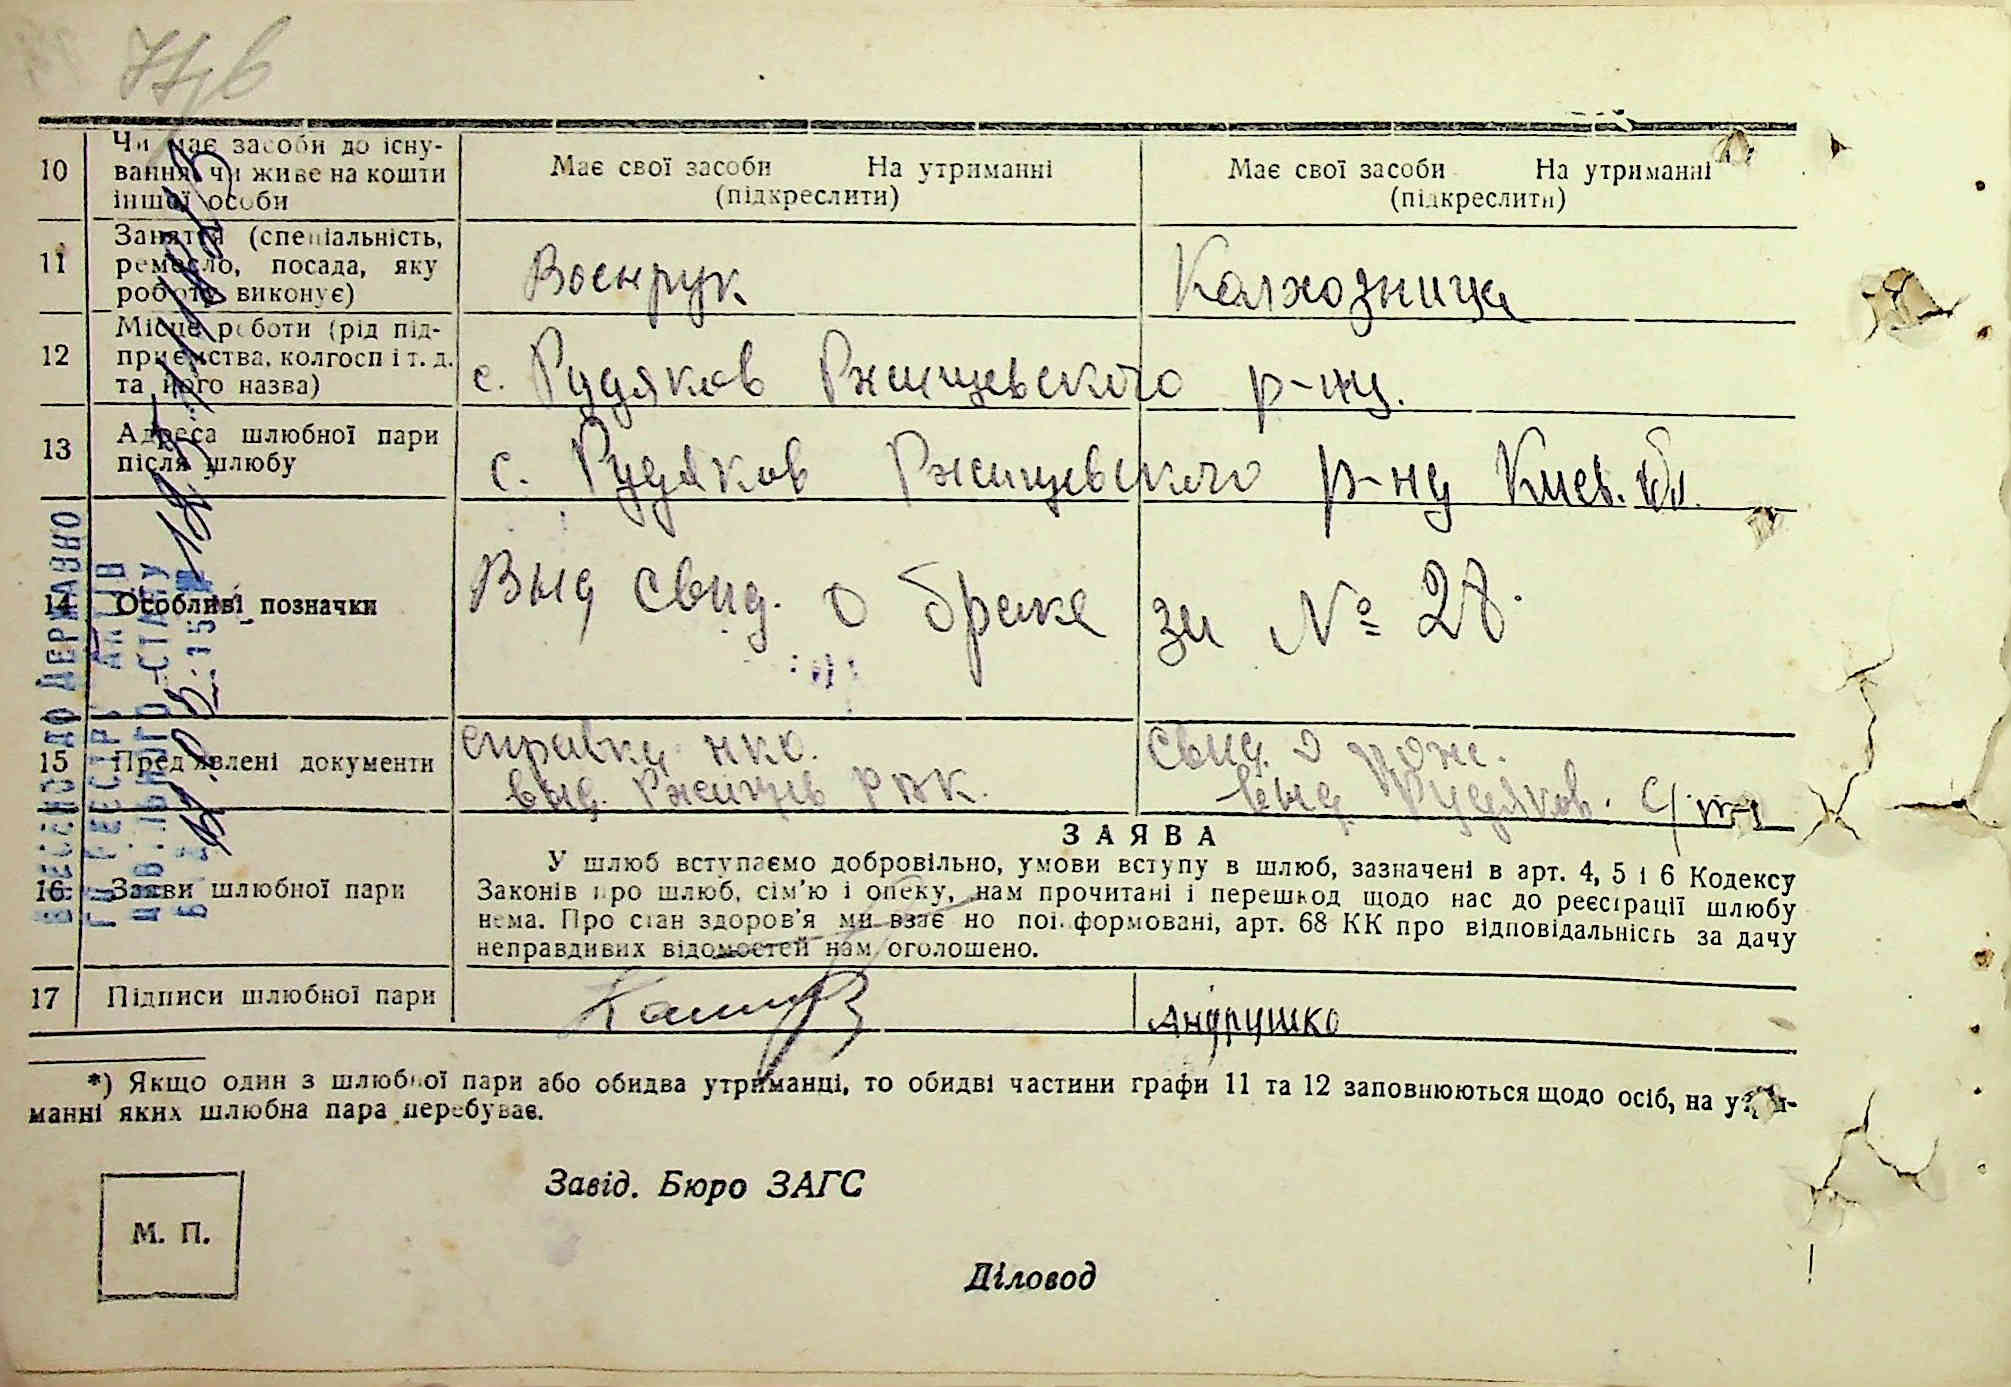 10 Чи має засоби до існу-
вання чи живе на кошти
іншої особи
Має свої засоби На утриманні
(підкреслити)
Має свої засоби На утриманні
(підкреслити)
11 Заняття (спеціальність,
ремесло, посада, яку
роботу виконує)
Военрук
Колхозница
12 Місце роботи (рід під-
приємства, колгосп і т. д.
та його назва)
с. Рудяков Ржищевского р-на.
13 Адреса шлюбної пари
після шлюбу
с. Рудяков Ржищевского р-на Киев. обл.
14 Особливі позначки
Выд свид. о браке за № 28.
15 Пред'явлені документи
справка НКО.
выд. Ржищев РВК.
свид. о рож.
выд. Рудяков. с/
16 Заяви шлюбної пари
ЗАЯВА
У шлюб вступаємо добровільно, умови вступу в шлюб, зазначені в арт. 4, 5 і 6 Кодексу
Законів про шлюб, сім'ю і опеку, нам прочитані і перешкод щодо нас до реєстрації шлюбу
нема. Про стан здоров'я ми взаємно поінформовані, арт. 68 КК про відповідальність за дачу
неправдивих відомостей нам оголошено.
17 Підписи шлюбної пари
Андрушко
*) Якщо один з шлюбної пари або обидва утриманці, то обидві частини графи 11 та 12 заповнюються щодо осіб, на утри-
манні яких шлюбна пара перебуває.
Завід. Бюро ЗАГС
М. П.
Діловод
ВНЕСЕНО ДО ДЕРЖАВНО
ГО РЕЄСТРУ АКТІВ
ЦИВІЛЬНОГО СТАНУ